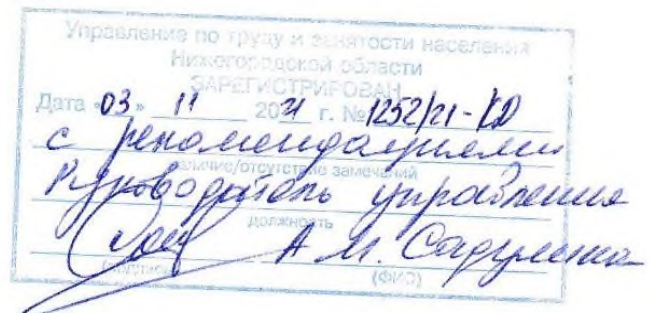 Управление по труду и занятости населения
Нижегородской области
ЗАРЕГИСТРИРОВАН
Дата «03» 11 2021 г. № 1252/21-КД
с рекомендациями
наличие/отсутствие замечаний
Руководитель управления
должность
А.М.
(подпись) (ФИО)